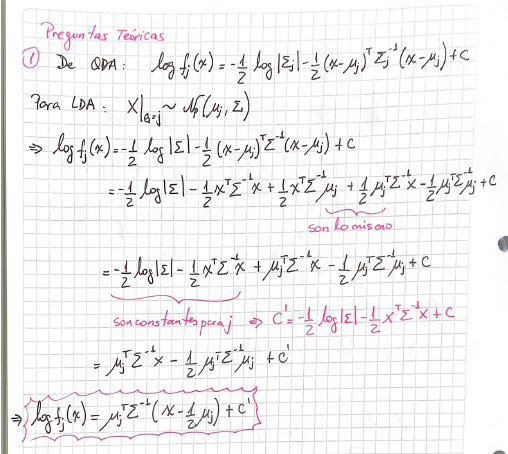 Preguntas Teóricas
① De QDA: log fⱼ(x) = -1/2 log|Σⱼ| - 1/2 (x-μⱼ)ᵀ Σⱼ⁻¹ (x-μⱼ) + C
Para LDA: X|_{G=j} ~ Np(μⱼ, Σ)
⇒ log fⱼ(x) = -1/2 log|Σ| - 1/2 (x-μⱼ)ᵀ Σ⁻¹ (x-μⱼ) + C
= -1/2 log|Σ| - 1/2 xᵀΣ⁻¹x + 1/2 xᵀΣ⁻¹μⱼ + 1/2 μⱼᵀΣ⁻¹x - 1/2 μⱼᵀΣ⁻¹μⱼ + C
son lo mismo
= -1/2 log|Σ| - 1/2 xᵀΣ⁻¹x + μⱼᵀΣ⁻¹x - 1/2 μⱼᵀΣ⁻¹μⱼ + C
son constantes para j ⇒ C' = -1/2 log|Σ| - 1/2 xᵀΣ⁻¹x + C
= μⱼᵀΣ⁻¹x - 1/2 μⱼᵀΣ⁻¹μⱼ + C'
⇒ log fⱼ(x) = μⱼᵀΣ⁻¹(x - 1/2 μⱼ) + C'